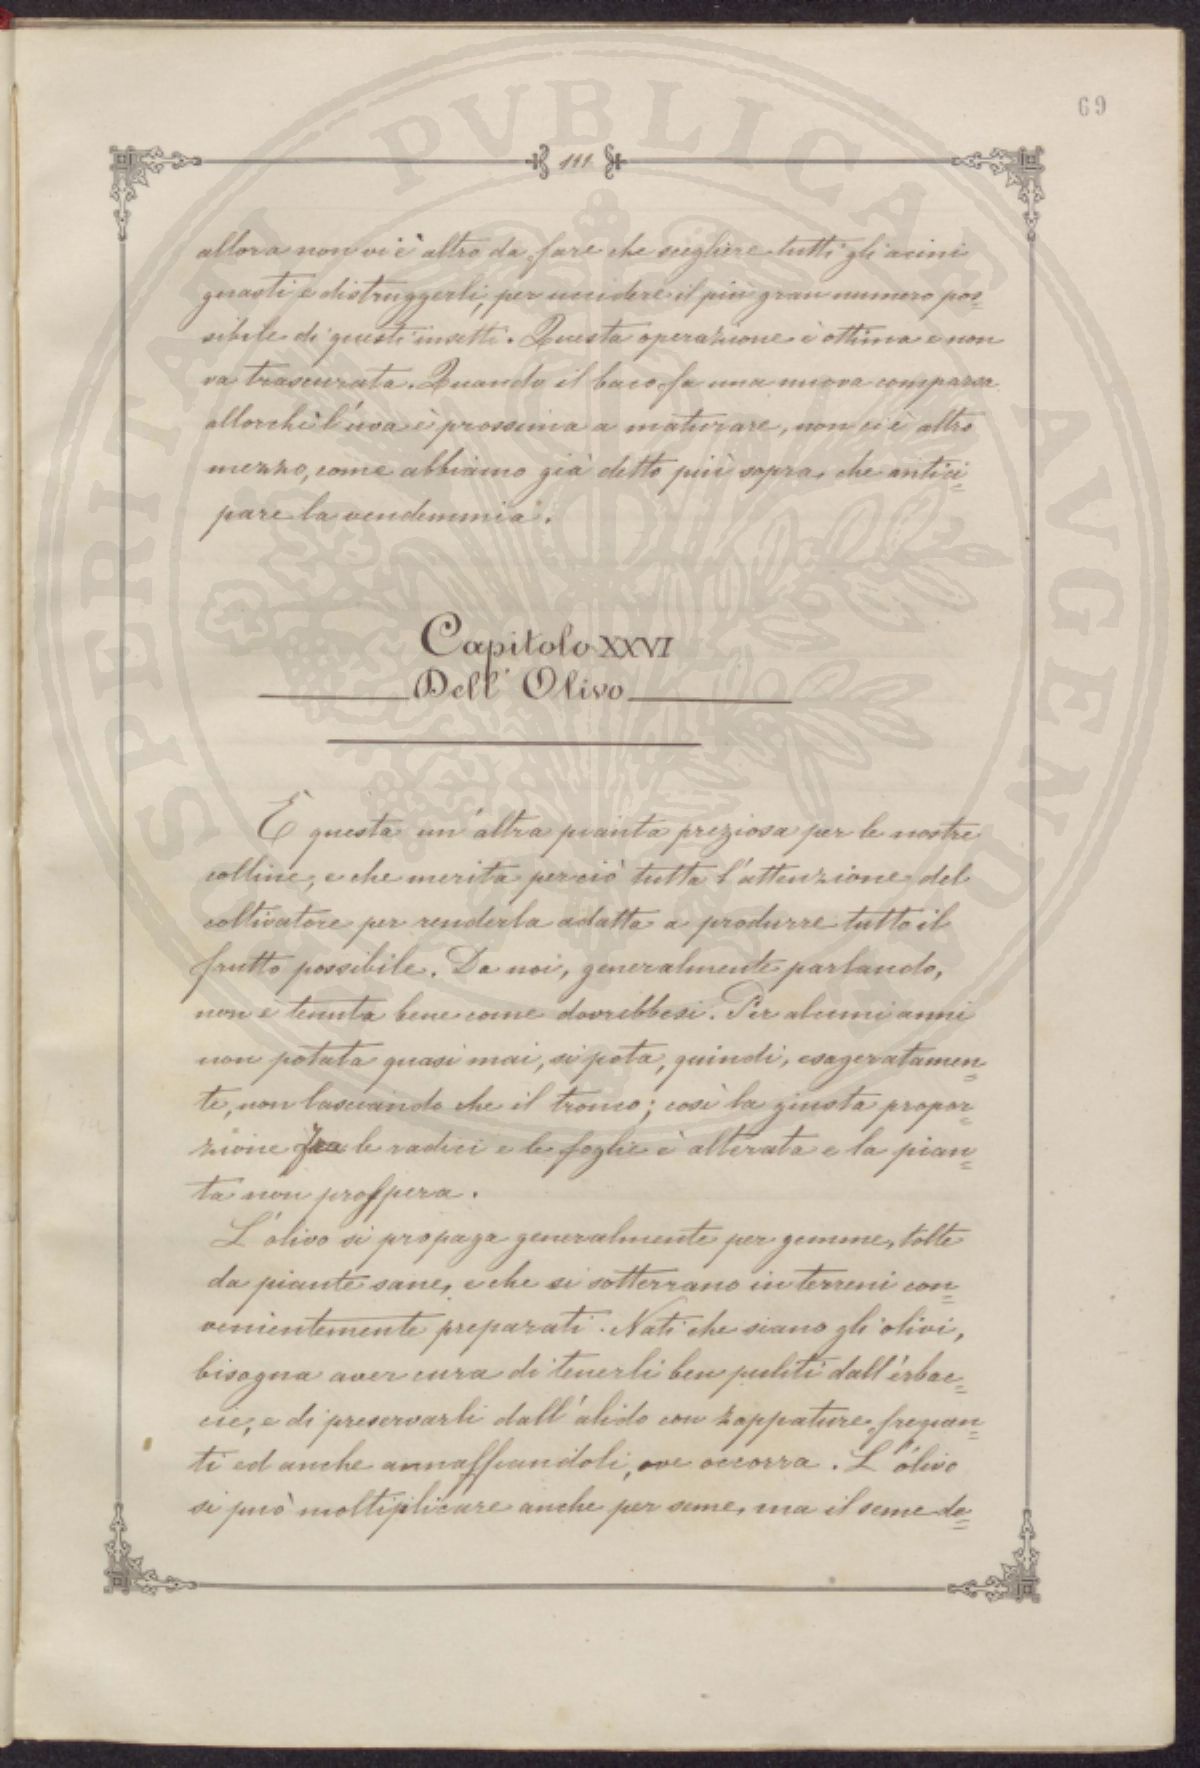 69
111
allora non vi è altro da fare che scegliere tutti gli acini
guasti e distruggerli, per uccidere il più gran numero pos=
sibile di questi insetti. Questa operazione è ottima e non
va trascurata. Quando il baco fa una nuova comparsa
allorchè l'uva è prossima a maturare, non ci è altro
mezzo, come abbiamo già detto più sopra, che antici=
pare la vendemmia.
Capitolo XXVI
Dell' Olivo
È questa un'altra pianta preziosa per le nostre
colline, e che merita perciò tutta l'attenzione del
coltivatore per renderla adatta a produrre tutto il
frutto possibile. Da noi, generalmente parlando,
non è tenuta bene come dovrebbesi. Per alcuni anni
non potata quasi mai, si pota, quindi, esageratamen=
te, non lasciando che il tronco; così la giusta propor=
zione fra le radici e le foglie è alterata e la pian=
ta non prospera.
L'olivo si propaga generalmente per gemme, tolte
da piante sane, e che si sotterrano in terreni con=
venientemente preparati. Nati che siano gli olivi,
bisogna aver cura di tenerli ben puliti dall'erbac=
cie, e di preservarli dall'alido con zappature frequen=
ti ed anche annaffiandoli, ove occorra. L'olivo
si può moltiplicare anche per seme, ma il seme de=
PVBLICAE AVGENDAE